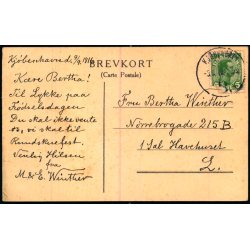 Kjøbenhavn d. 9/4 1916
BREVKORT
(Carte Postale)
Kære Bertha!
Til Lykke paa
Fødselsdagen
Du skal ikke vente
os, vi skal til
Rundskuefest.
Venlig Hilsen
fra
M & E Winther
Fru Bertha Winther
Nörrebrogade 215 B
1 Sal Havehuset
L.